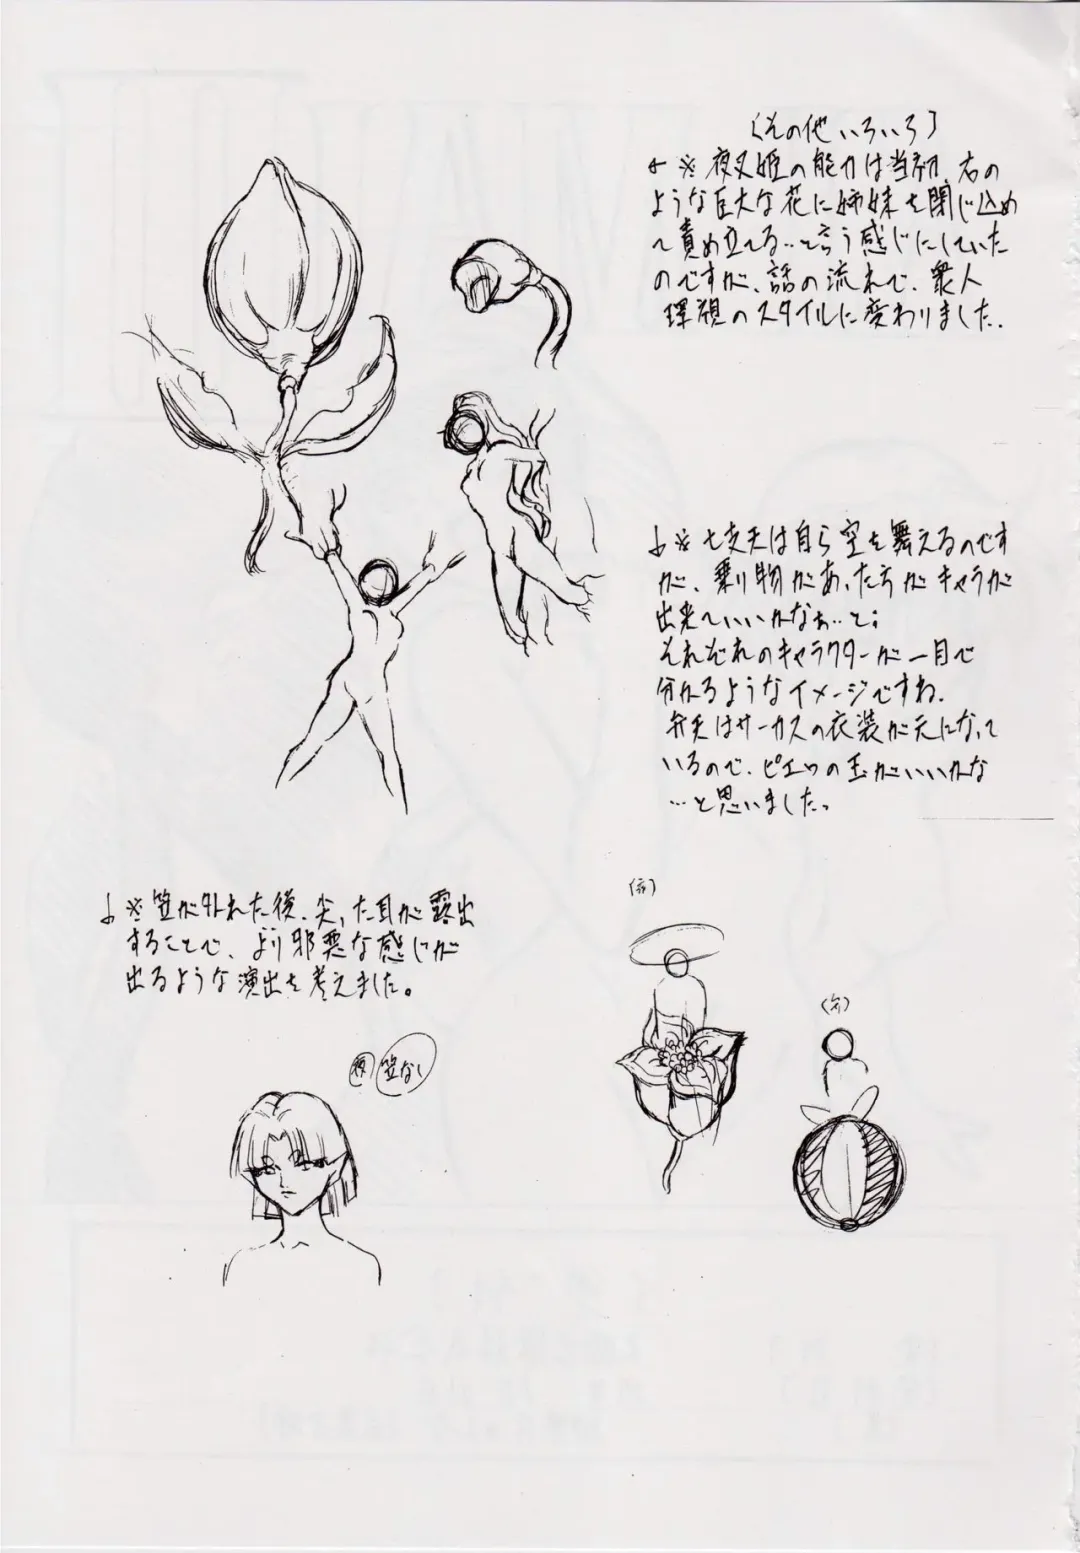 〔その他 いろいろ〕
←※ 夜叉姫の能力は当初、右の
ような巨大な花に姉妹を閉じ込め
て責め立てる…と言う感じにしていた
のですが、話の流れで、衆人
環視のスタイルに変わりました。
↓※ 七支天は自ら空を舞えるのです
が、乗り物があった方がキャラが
出来ていいかなぁ…と;
それぞれのキャラクターが一目で
分かるようなイメージですね.
弁天はサーカスの衣装が元になって
いるので、ピエロの玉がいいかな
…と思いました。
↓※ 笠が外れた後、尖った耳が露出
することで、より邪悪な感じが
出るような演出を考えました。
笠なし